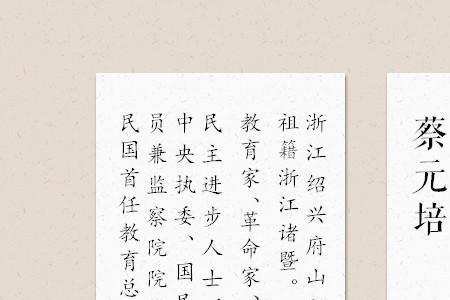 蔡元培
浙江绍兴府山
祖籍浙江诸暨。
教育家、革命家、
民主进步人士
中央执委、国民
员兼监察院院
民国首任教育总